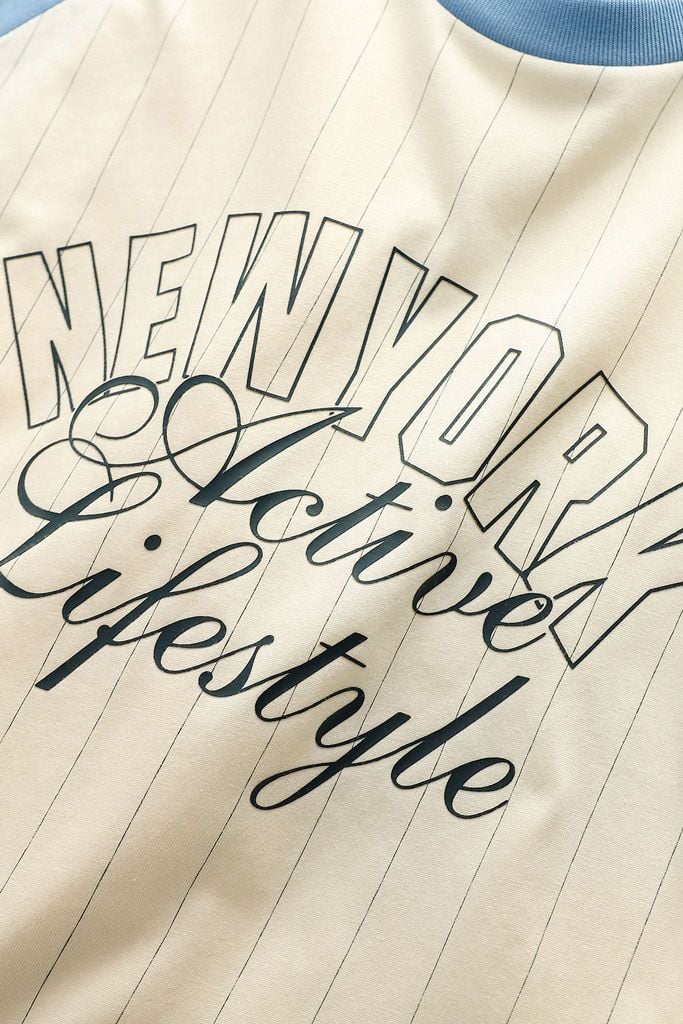 NEW YORK
Active
Lifestyle